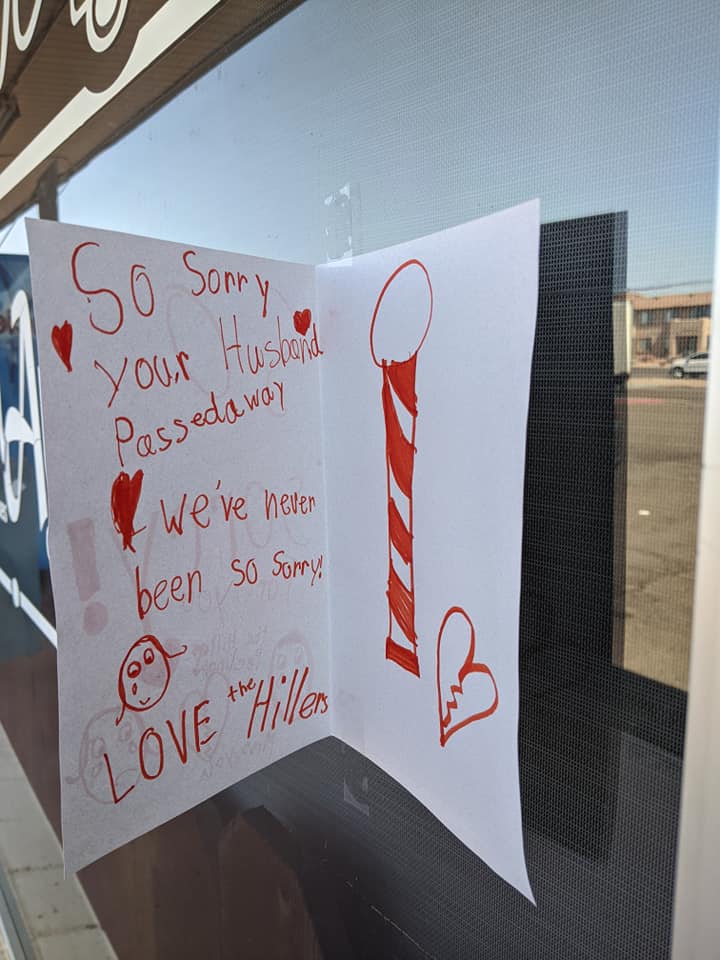 So Sorry
your Husband
Passed away
we've never
been so sorry!
LOVE the Hillers